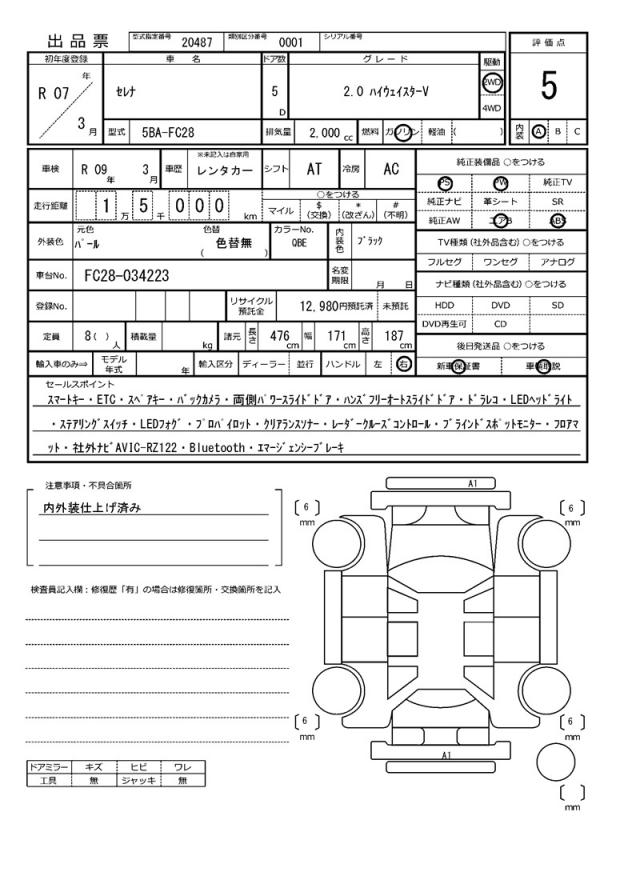 出品票 型式指定番号 20487 類別区分番号 0001 シリアル番号
初年度登録 車名 ドア数 グレード 駆動 評価点
R 07 年 3 月 セレナ 5 D 2.0 ハイウェイスターV 2WD 4WD 5
型式 5BA-FC28 排気量 2,000 cc 燃料 ガソリン 軽油 ( ) 内装 A B C
車検 R 09 年 3 月 車歴 ※未記入は自家用 レンタカー シフト AT 冷房 AC 純正装備品 ○をつける
PS PW 純正TV
走行距離 1 万 5 千 0 0 0 km ○をつける マイル $ (交換) * (改ざん) # (不明) 純正ナビ 革シート SR
純正AW エアB ABS
外装色 元色 パール 色替 色替無 ( ) カラーNo. QBE 内装色 ブラック TV種類 (社外品含む) ○をつける
フルセグ ワンセグ アナログ
車台No. FC28-034223 名変期限 月 日 ナビ種類 (社外品含む) ○をつける
登録No. リサイクル預託金 12,980円預託済 未預託 HDD DVD SD
DVD再生可 CD
定員 8( ) 人 積載量 kg 諸元 長さ 476 cm 幅 171 cm 高さ 187 cm 後日発送品 ○をつける
輸入車のみ⇒ モデル年式 年 輸入区分 ディーラー 並行 ハンドル 左 右 新車保証書 車輌取説
セールスポイント
スマートキー・ETC・スペアキー・バックカメラ・両側パワースライドドア・ハンズフリーオートスライドドア・ドラレコ・LEDヘッドライト
・ステアリングスイッチ・LEDフォグ・プロパイロット・クリアランスソナー・レーダークルーズコントロール・ブラインドスポットモニター・フロアマ
ット・社外ナビAVIC-RZ122・Bluetooth・エマージェンシーブレーキ
注意事項・不具合箇所
内外装仕上げ済み
検査員記入欄:修復歴「有」の場合は修復箇所・交換箇所を記入
A1
6 mm
6 mm
6 mm
6 mm
A1
mm
ドアミラー キズ ヒビ ワレ
工具 無 ジャッキ 無